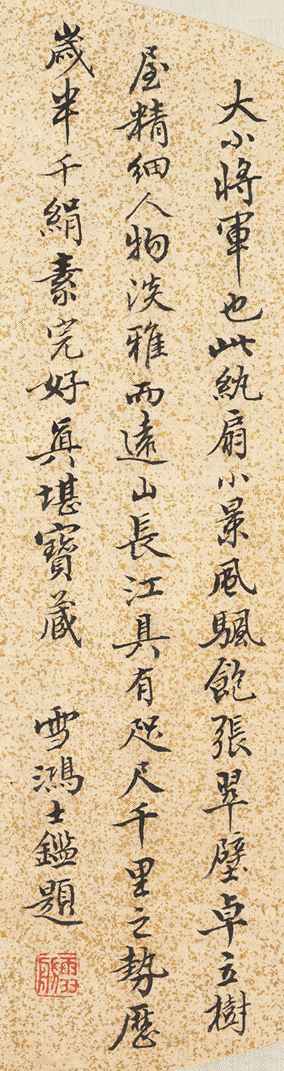 大小將軍也此紈扇小景風颿飽張翠壁卓立樹
屋精細人物淡雅而遠山長江具有咫尺千里之勢歷
歲半千絹素完好真堪寶藏 雪鴻士鑑題